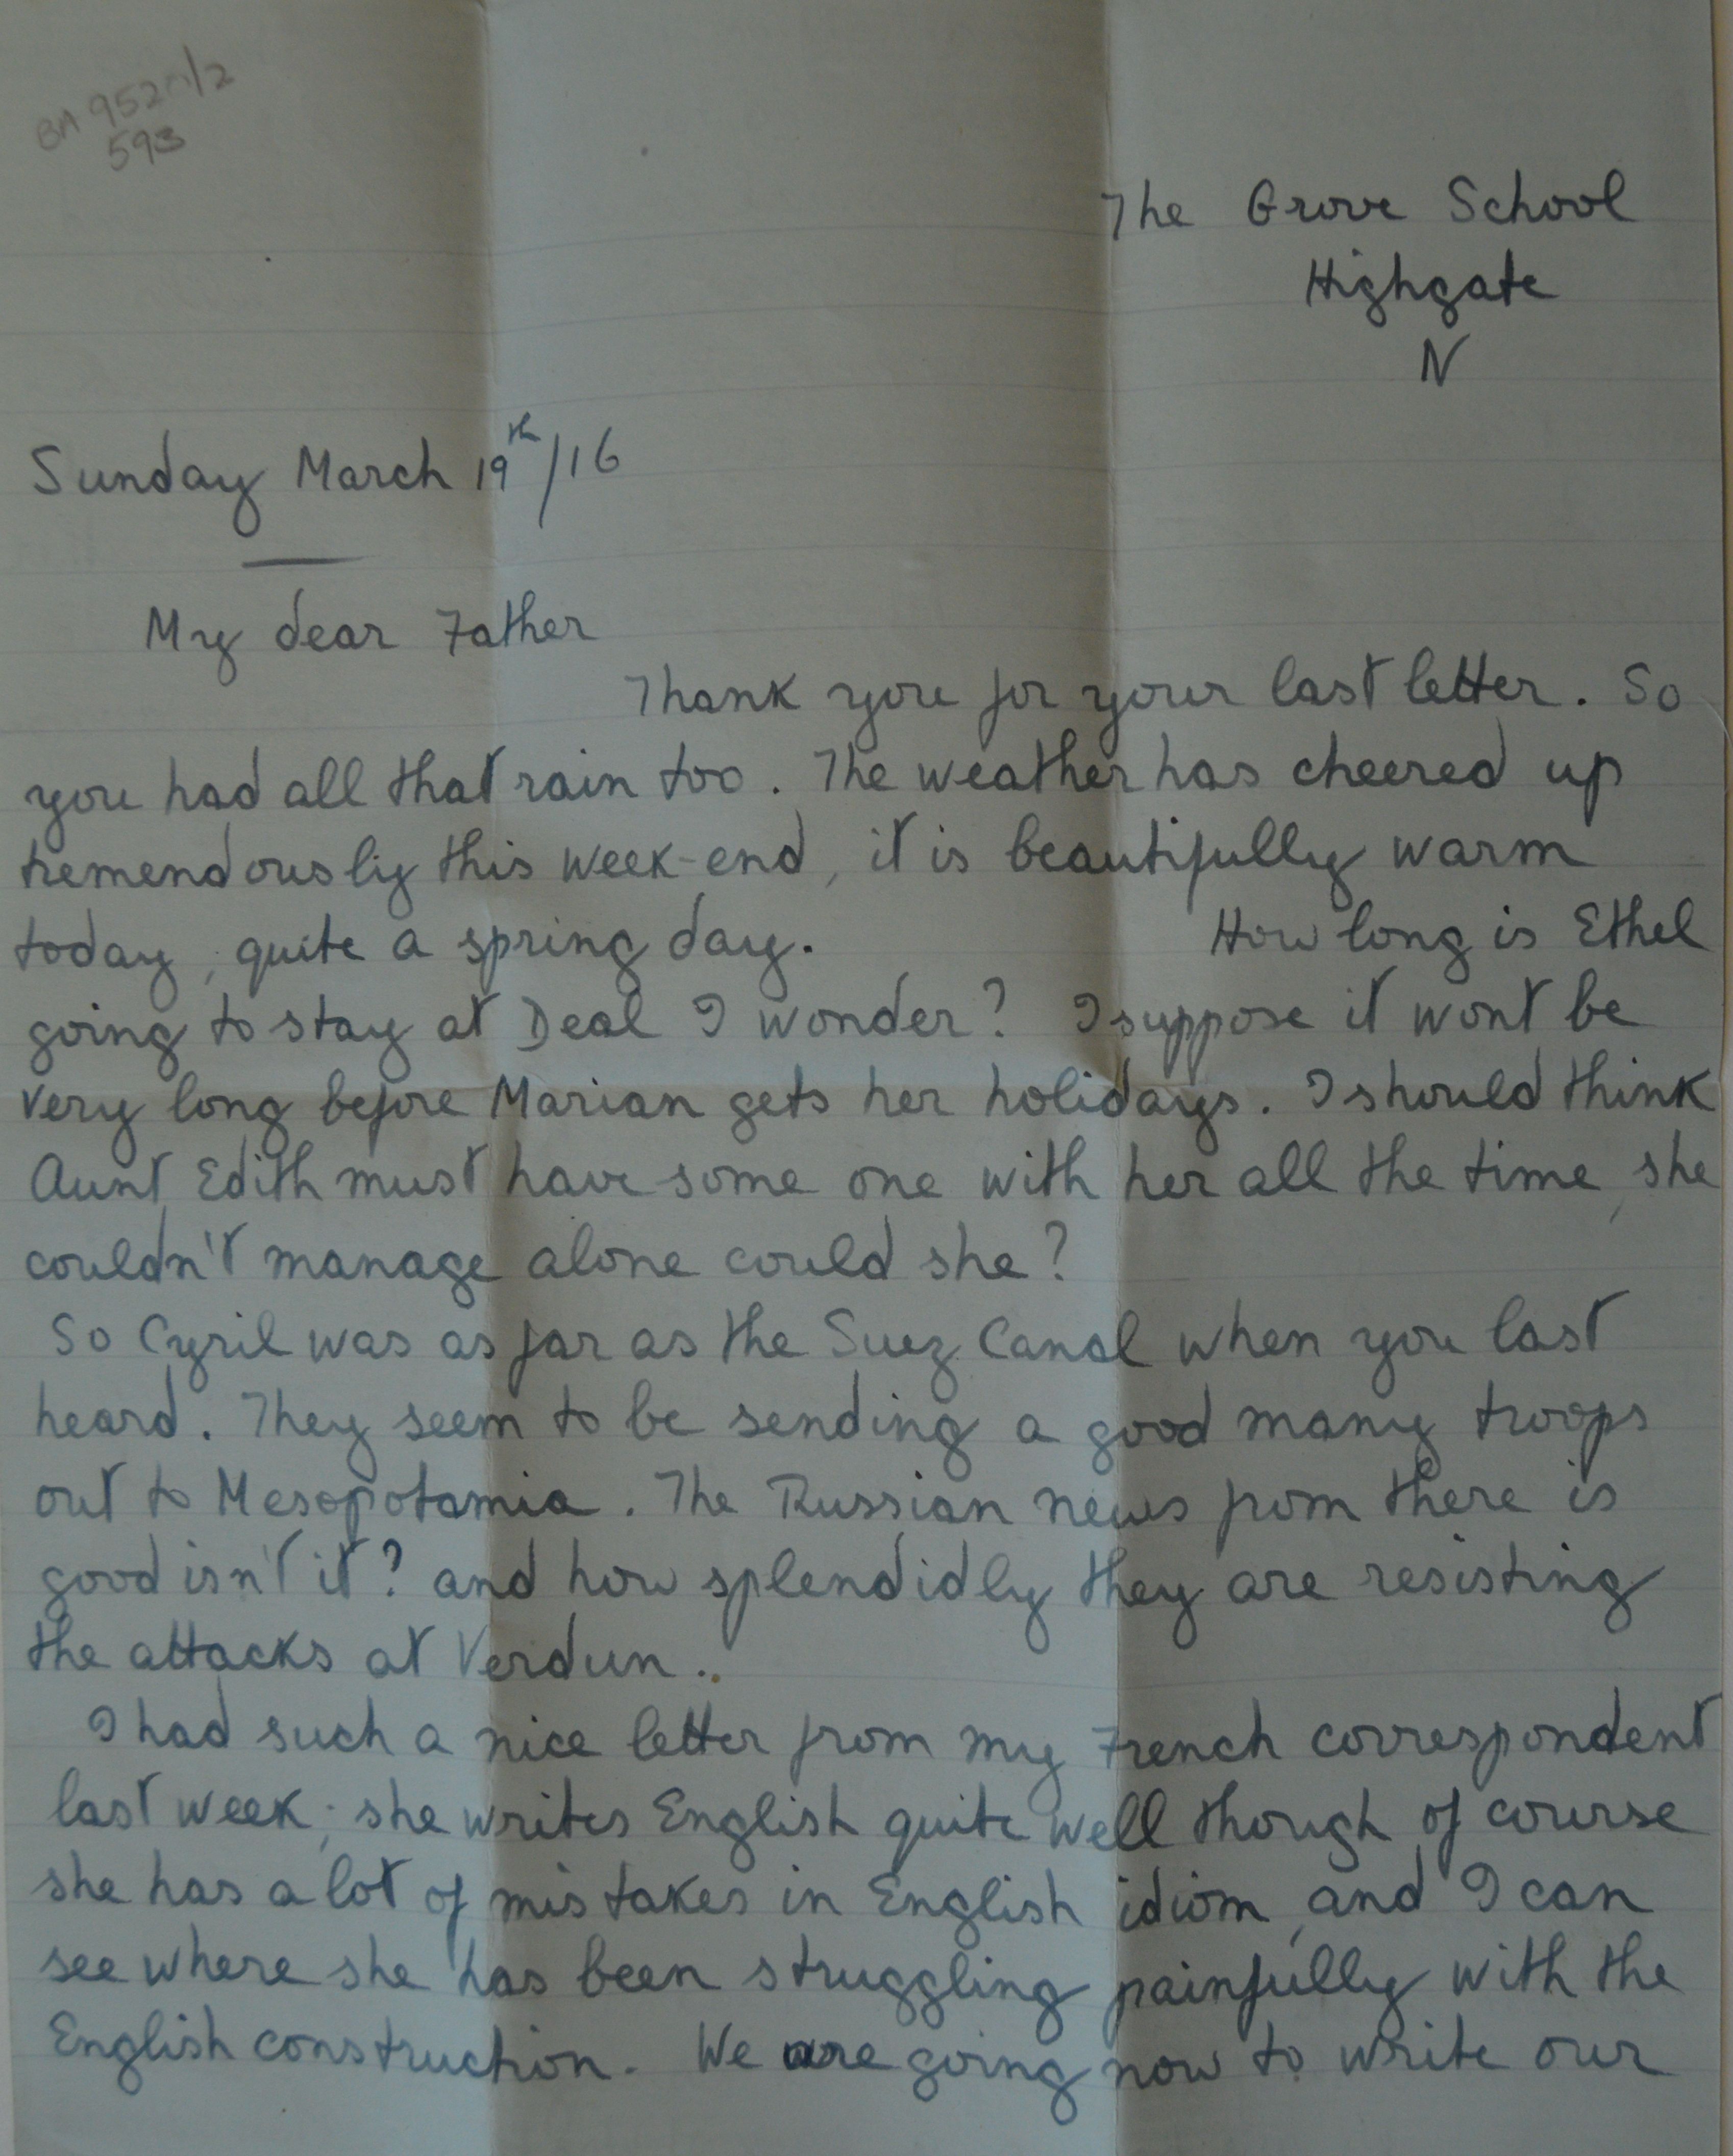 BA 9520/2
593
The Grove School
Highgate
N
Sunday March 19th/16
My dear Father
Thank you for your last letter. So
you had all that rain too. The weather has cheered up
tremendously this week-end, it is beautifully warm
today, quite a spring day. How long is Ethel
going to stay at Deal I wonder? I suppose it wont be
very long before Marian gets her holidays. I should think
Aunt Edith must have some one with her all the time, she
couldn't manage alone could she?
So Cyril was as far as the Suez Canal when you last
heard. They seem to be sending a good many troops
out to Mesopotamia. The Russian news from there is
good isn't it? and how splendidly they are resisting
the attacks at Verdun.
I had such a nice letter from my French correspondent
last week; she writes English quite well though of course
she has a lot of mistakes in English idiom, and I can
see where she has been struggling painfully with the
English construction. We are going now to write our